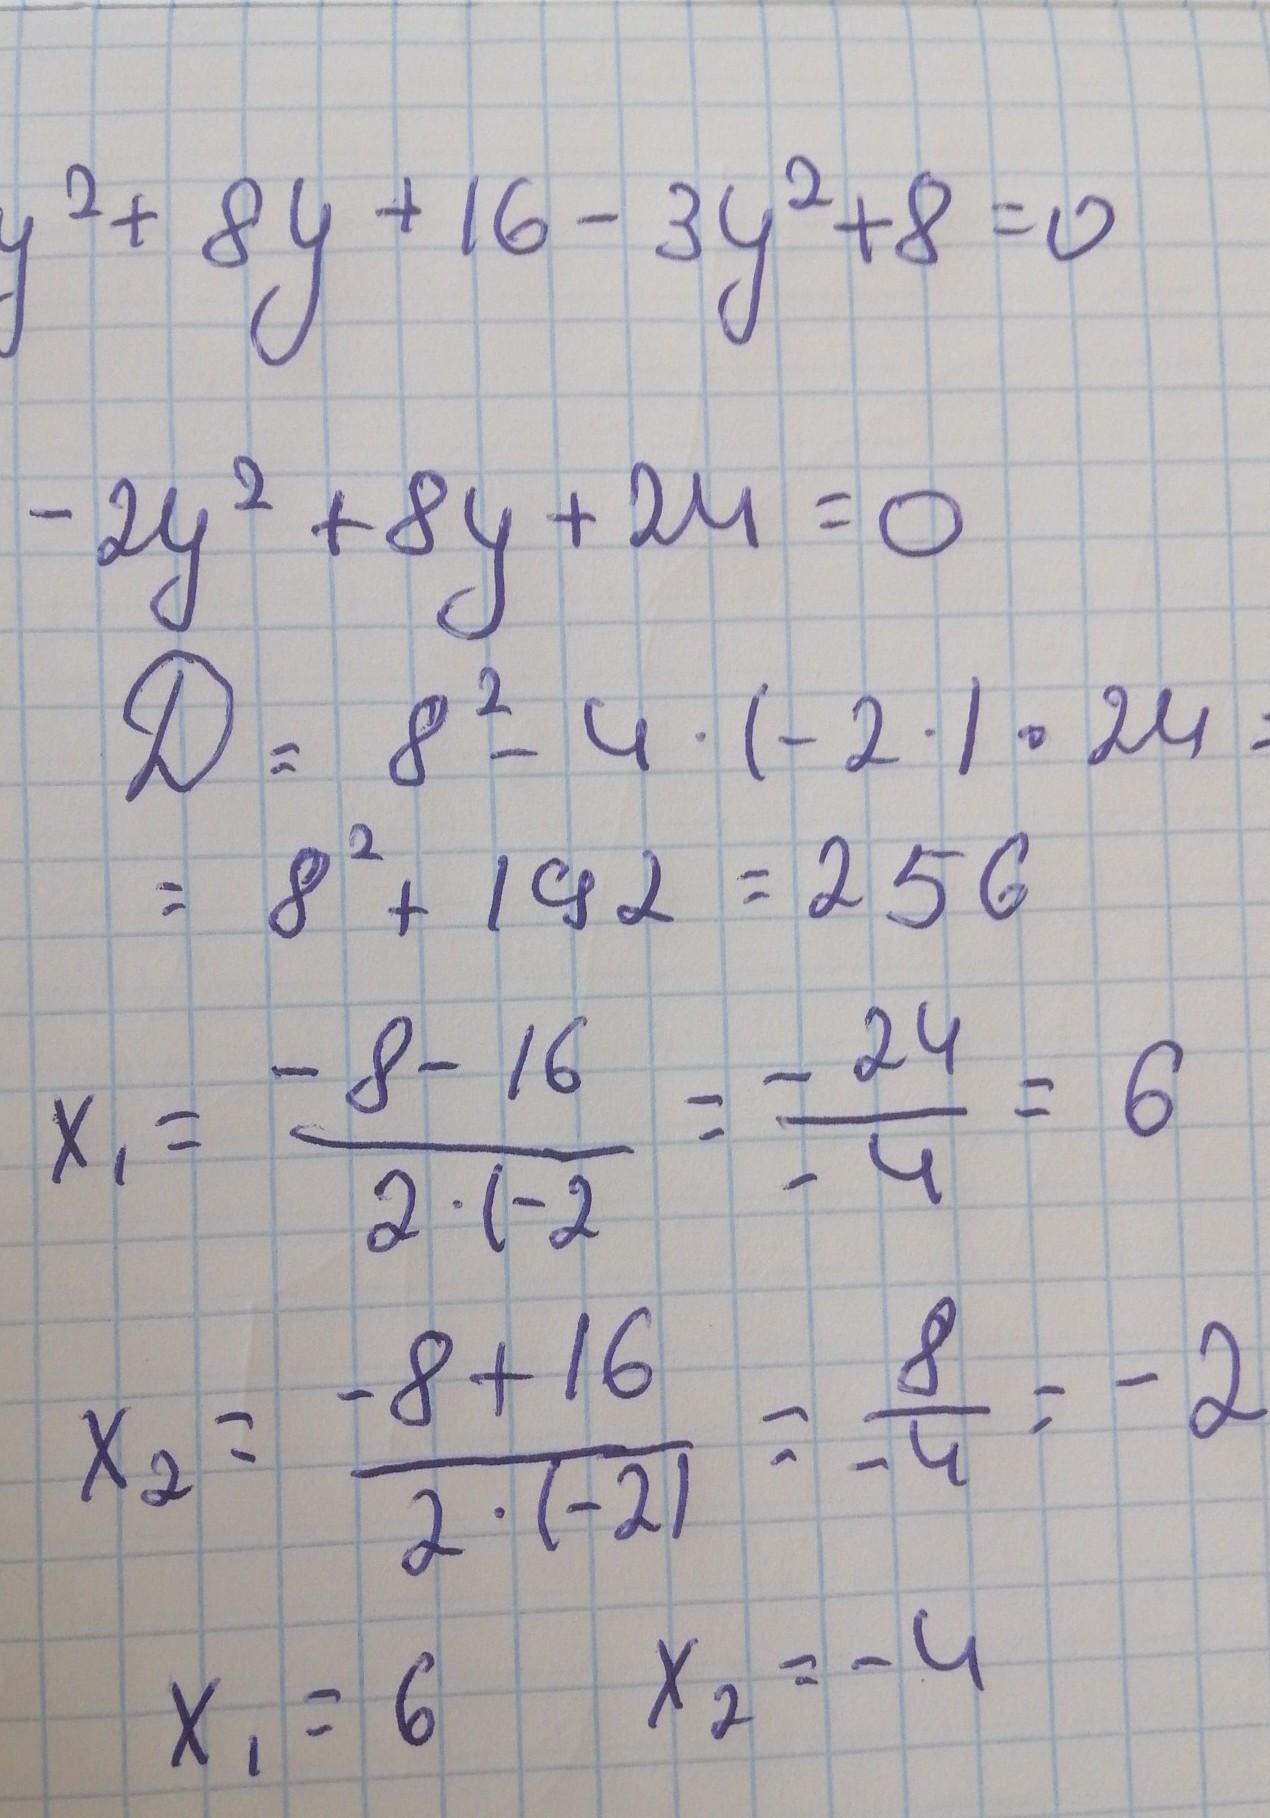 y² + 8y + 16 - 3y² + 8 = 0
-2y² + 8y + 24 = 0
D = 8² - 4 · (-2·) · 24 =
= 8² + 192 = 256
x₁ = (-8 - 16)/(2 · (-2) = -24/-4 = 6
x₂ = (-8 + 16)/(2 · (-2)) = 8/-4 = -2
x₁ = 6 x₂ = -4